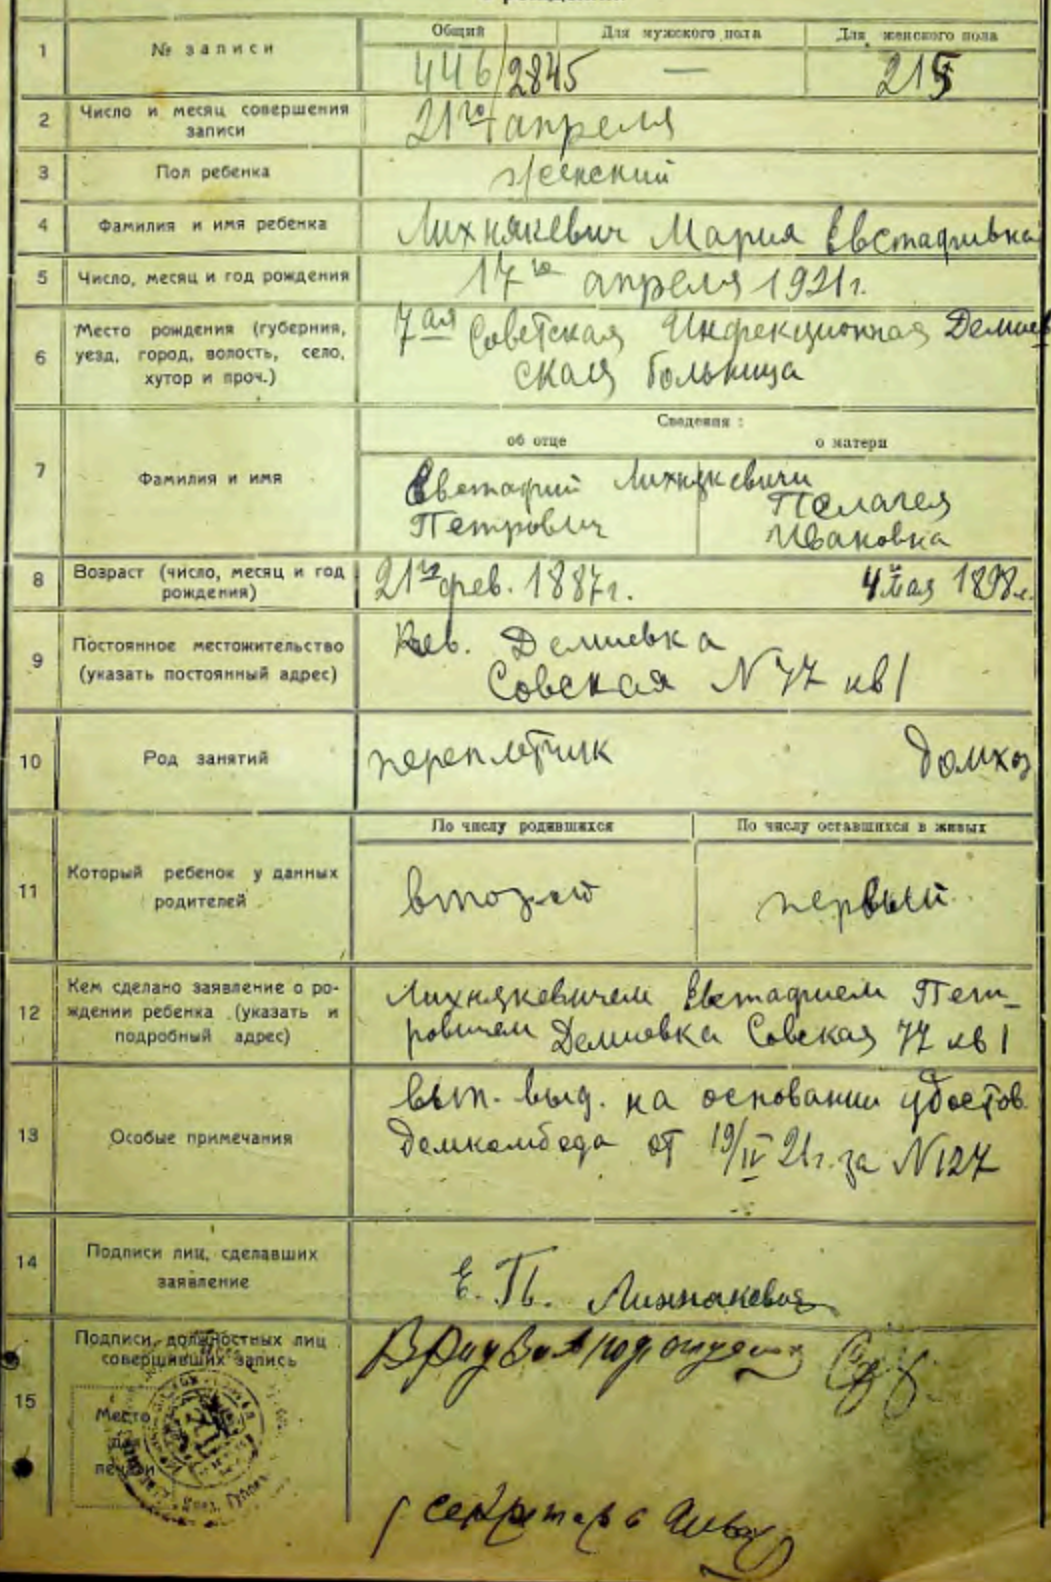 1
№ записи
Общий
Для мужского пола
Для женского пола
446/2845
—
215
2
Число и месяц совершения
записи
21го апреля
3
Пол ребенка
женский
4
Фамилия и имя ребенка
Лихнякевич Мария Евстафивна
5
Число, месяц и год рождения
17го апреля 1921г.
6
Место рождения (губерния,
уезд, город, волость, село,
хутор и проч.)
7ая Советская Инфекционная Демиев
ская больница
7
Фамилия и имя
Сведения:
об отце
о матери
Евстафий Лихнякевичи
Петрович
Пелагея
Ивановна
8
Возраст (число, месяц и год
рождения)
21го фев. 1887г.
4 мая 1898г.
9
Постоянное местожительство
(указать постоянный адрес)
Киев. Демиевка
Совская N 77 кв 1
10
Род занятий
переплетчик
домхоз
11
Который ребенок у данных
родителей
По числу родившихся
По числу оставшихся в живых
второй
первый
12
Кем сделано заявление о ро-
ждении ребенка (указать и
подробный адрес)
Лихнякевичем Евстафием Пет-
ровичем Демиевка Совская 77 кв 1
13
Особые примечания
вып. выд. на основании удостов.
Демкомбеда от 19/IV 21г. за N127
14
Подписи лиц, сделавших
заявление
Е. П.
15
Подписи должностных лиц
совершивших запись
Место
для
печати
секретарь